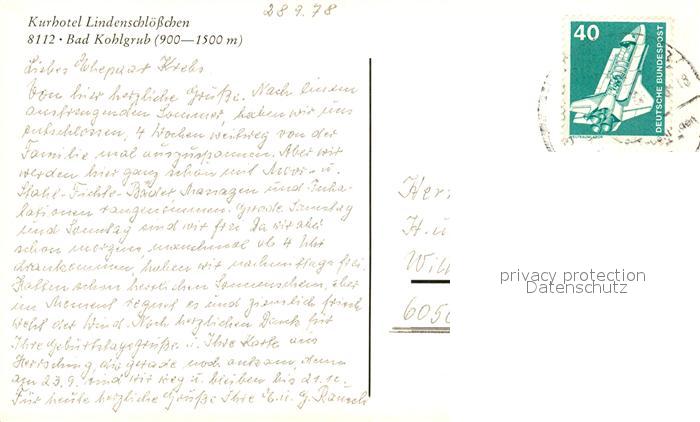 28 9. 78
Kurhotel Lindenschlößchen
8112 · Bad Kohlgrub (900—1500 m)
Liebes Ehepaar Krebs.
Von hier herzliche Grüße. Nach einem
anstrengenden Sommer, haben wir uns
entschlossen, 4 Wochen weitweg von der
Familie mal auszuspannen. Aber wir
werden hier ganz schön mit Moor- u.
Stahl-Fichte-Bäder Massagen und Inha-
lationen rangenommen. Gerade Samstag
und Sonntag sind wir frei. Da wir aber
schon morgens manchmal ab 4 Uhr
drankommen, haben wir nachmittags frei.
Hatten schon herrlichen Sonnenschein, aber
im Moment regnet es und ziemlich frisch
weht der Wind. Noch herzlichen Dank für
Ihre Geburtstagsgrüße u. Ihre Karte aus
Herrsching, die gerade noch ankam, denn
am 23.9. sind wir weg u. bleiben bis 21.10.
Für heute herzliche Grüße Ihre u. G. Rausch
40
DEUTSCHE BUNDESPOST
H. u
6050
privacy protection
Datenschutz